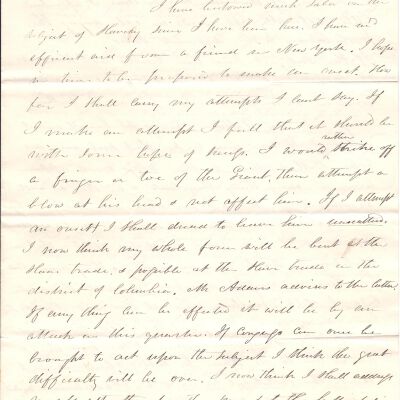 I have bestowed much labor on the
subject of Slavery since I have been here. I have had
efficient aid from a friend in New York. I hope
in time to be prepared to make an onset. How
far I shall carry my attempts I cant say. If
I make an attempt I feel that it should be
with some hope of success. I would rather strike off
a finger or toe of the Giant, than attempt a
blow at his head & not affect him. If I attempt
an onset I shall desire to leave him
I now think my whole force will be bent at the
Slave trade, & possible at the Slave trade in the
district of Columbia. Mr Adams advises to the latter.
If any thing can be effected it will be by an
attack on this quarter. If congress can once be
brought to act upon the subject I think the great
difficulty will be over. I now think I shall address